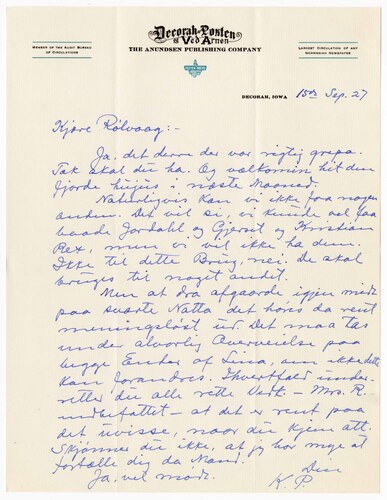 Decorah-Posten
Ved Arnen
THE ANUNDSEN PUBLISHING COMPANY
MEMBER OF THE AUDIT BUREAU
OF CIRCULATIONS
LARGEST CIRCULATION OF ANY
NORWEGIAN NEWSPAPER
DECORAH, IOWA
15de Sep. 27
Kjære Rølvaag:-
Ja, det derre der var rigtig grepa.
Tak skal du ha. Og velkomin hit den
fjorde hujus i næste Maaned.
Naturligvis kan vi ikke faa nogen
anden. Det vil si, vi kunde vel faa
baade Jordahl og Gjersit og Kristian
Rex, men vi vil ikke ha dem.
Ikke til dette Brug, nei. De skal
bruges til noget andet.
Men at dra afgaarde igjen midt
paa svarte Natta det høres da rent
meningsløst ud. Det maa tas
under alvorlig Overveielse paa
begge Enher of Lina, om ikke dette
kan forandres. Ihvertfald under-
retter du alle rette Vedk. — Mrs. R.
indbefattet — at det er rent paa
det uvisse, naar du kjem att.
Skjønner du ikke, at jeg har meget at
fortælle dig da Mand.
Ja, vel møtt.
Din
K. P.